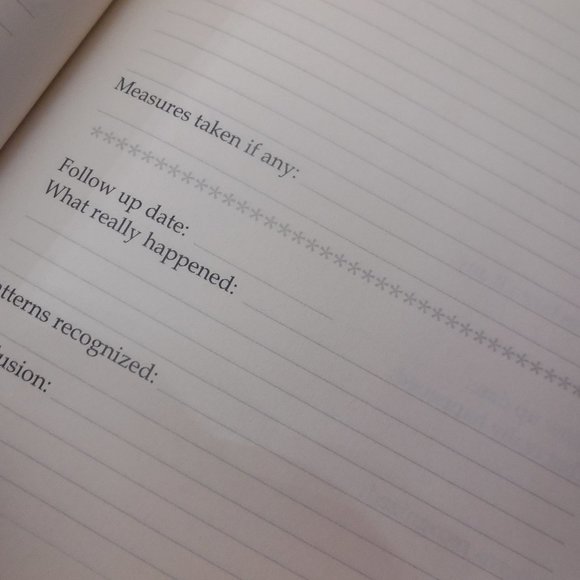 Measures taken if any:
****************************************
Follow up date:
What really happened:
recognized: